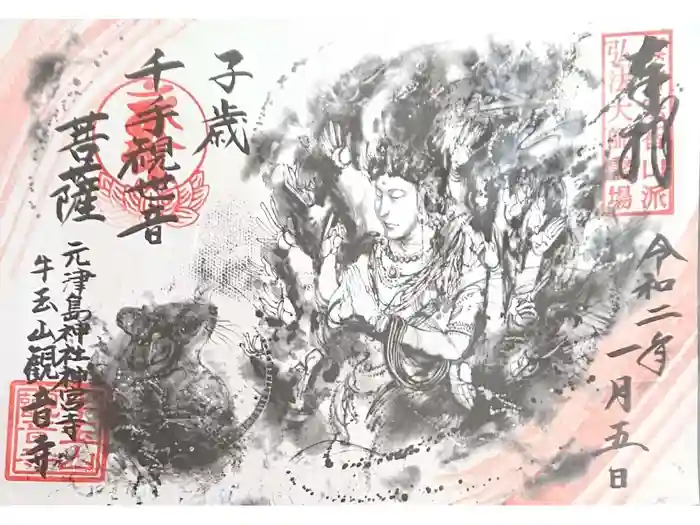 奉拝
弘法大師霊場
令和二年
一月五日
子歳
千手観世音
菩薩
元津島神社神宮寺
牛玉山観音寺